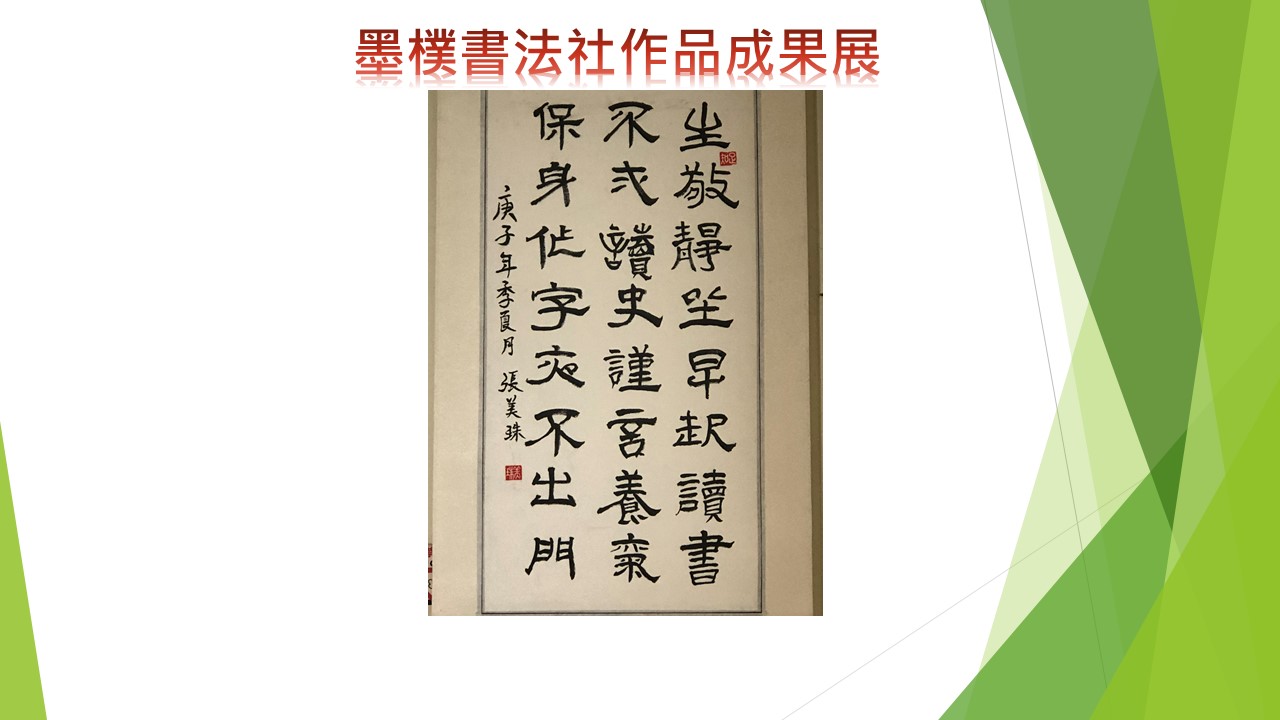 墨樸書法社作品成果展
主敬靜坐早起讀書
不弍讀史謹言養氣
保身作字夜不出門
庚子年季夏月 張美珠